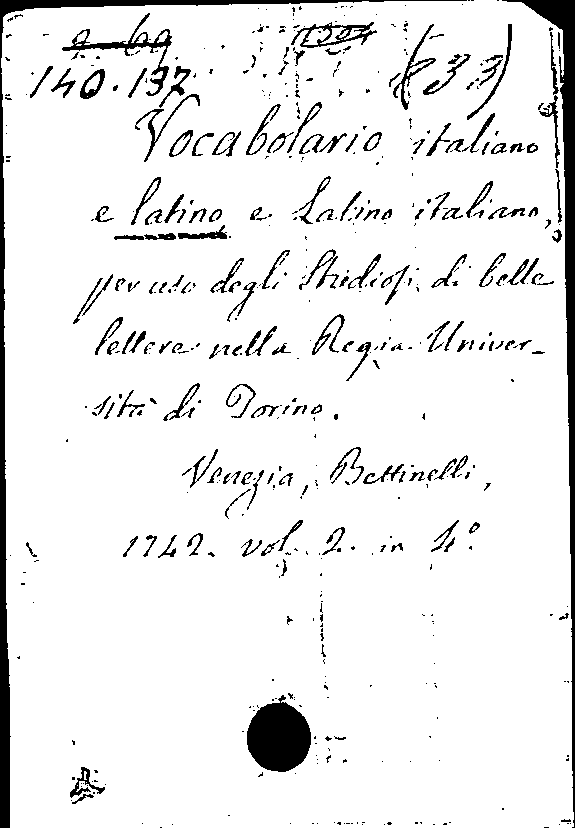 140.137
Vocabolario italiano
e latino e Latino italiano,
per uso degli Studiosi di belle
lettere nella Regia Univer-
sità di Torino.
Venezia, Bettinelli,
1742. vol. 2. in 4º.